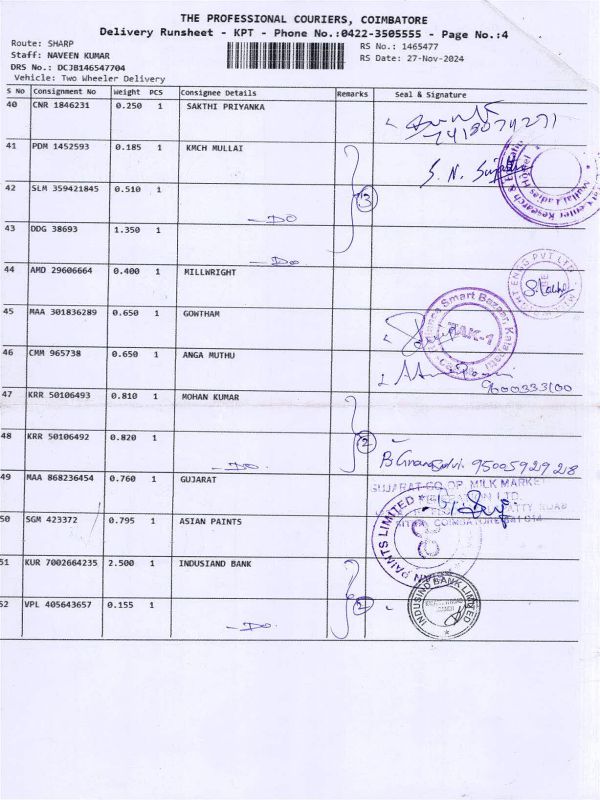 THE PROFESSIONAL COURIERS, COIMBATORE
Delivery Runsheet - KPT - Phone No.:0422-3505555 - Page No.:4
Route: SHARP
Staff: NAVEEN KUMAR
DRS No.: DCJB146547704
Vehicle: Two Wheeler Delivery
RS No.: 1465477
RS Date: 27-Nov-2024
S No Consignment No Weight PCS Consignee Details Remarks Seal & Signature
40 CNR 1846231 0.250 1 SAKTHI PRIYANKA
41 PDM 1452593 0.185 1 KMCH MULLAI S. N.
42 SLM 359421845 0.510 1 - Do 3
43 DDG 38693 1.350 1 - Do
44 AMD 29606664 0.400 1 MILLWRIGHT
45 MAA 301836289 0.650 1 GOWTHAM
46 CMM 965738 0.650 1 ANGA MUTHU
9600333100
47 KRR 50106493 0.810 1 MOHAN KUMAR
48 KRR 50106492 0.820 1 - Do. 2 9500592928
49 MAA 868236454 0.760 1 GUJARAT
GUJARAT CO.OP. MILK MARKET
50 SGM 423372 0.795 1 ASIAN PAINTS
PAINTS LIMITED
51 KUR 7002664235 2.500 1 INDUSIAND BANK
INDUSIND BANK LIMITED
52 VPL 405643657 0.155 1 - Do. 2